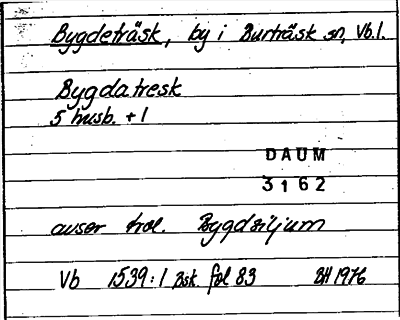 Bygdeträsk, by i Burträsk sn, Vb.l.
Bygdatresk
5 husb. + 1
DAUM
3162
avser trol. Bygdsiljum
Vb 1539:1 Bsk. fol 83 BH 1976